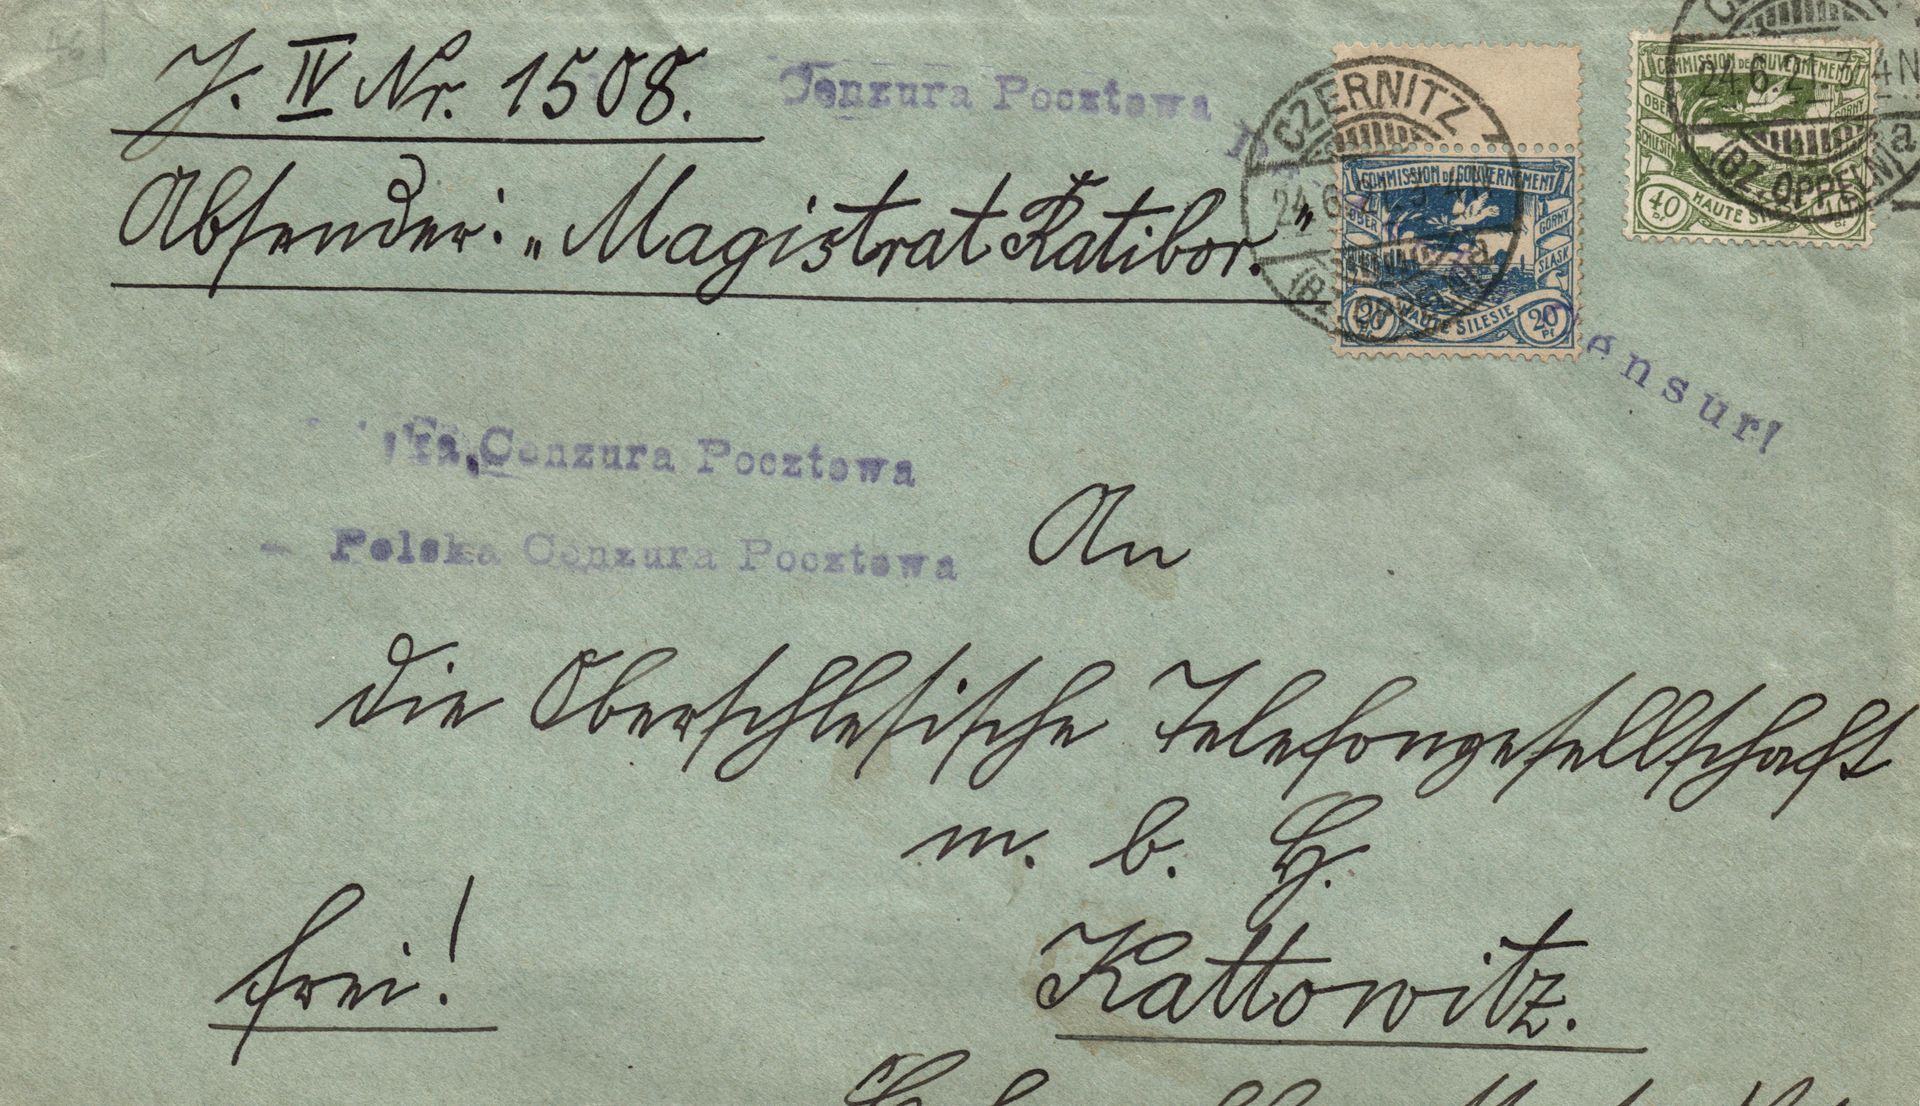 J. IV Nr. 1508.
Cenzura Pocztowa
Absender: „Magistrat Ratibor."
CZERNITZ
24.6.21.3-4N
a
(BZ. OPPELN)
COMMISSION DE GOUVERNEMENT
OBER
SCHLESIEN
GÓRNY
ŚLĄSK
20 Pf
HAUTE SILESIE
20 Pf
24.6.21.3-4N
a
(BZ. OPPELN)
COMMISSION DE GOUVERNEMENT
OBER
SCHLESIEN
GÓRNY
40 Pf
HAUTE
Pf
ensur!
ka Cenzura Pocztowa
- Polska Cenzura Pocztowa
An
die Oberschlesische Telefongesellschaft
m. b. H.
frei!
Kattowitz.